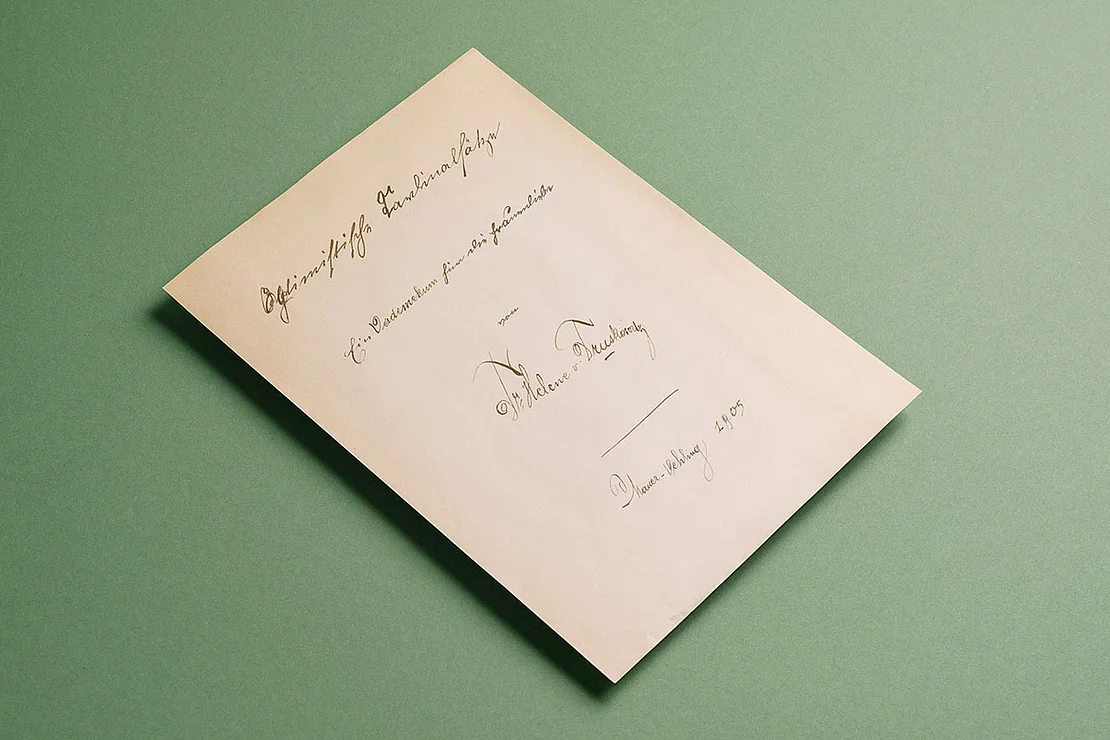 Optimistische Cardinalsätze
Ein Vademekum für die
von
Dr. Helene v. Druskowitz
Mauer-Oehling, 1905